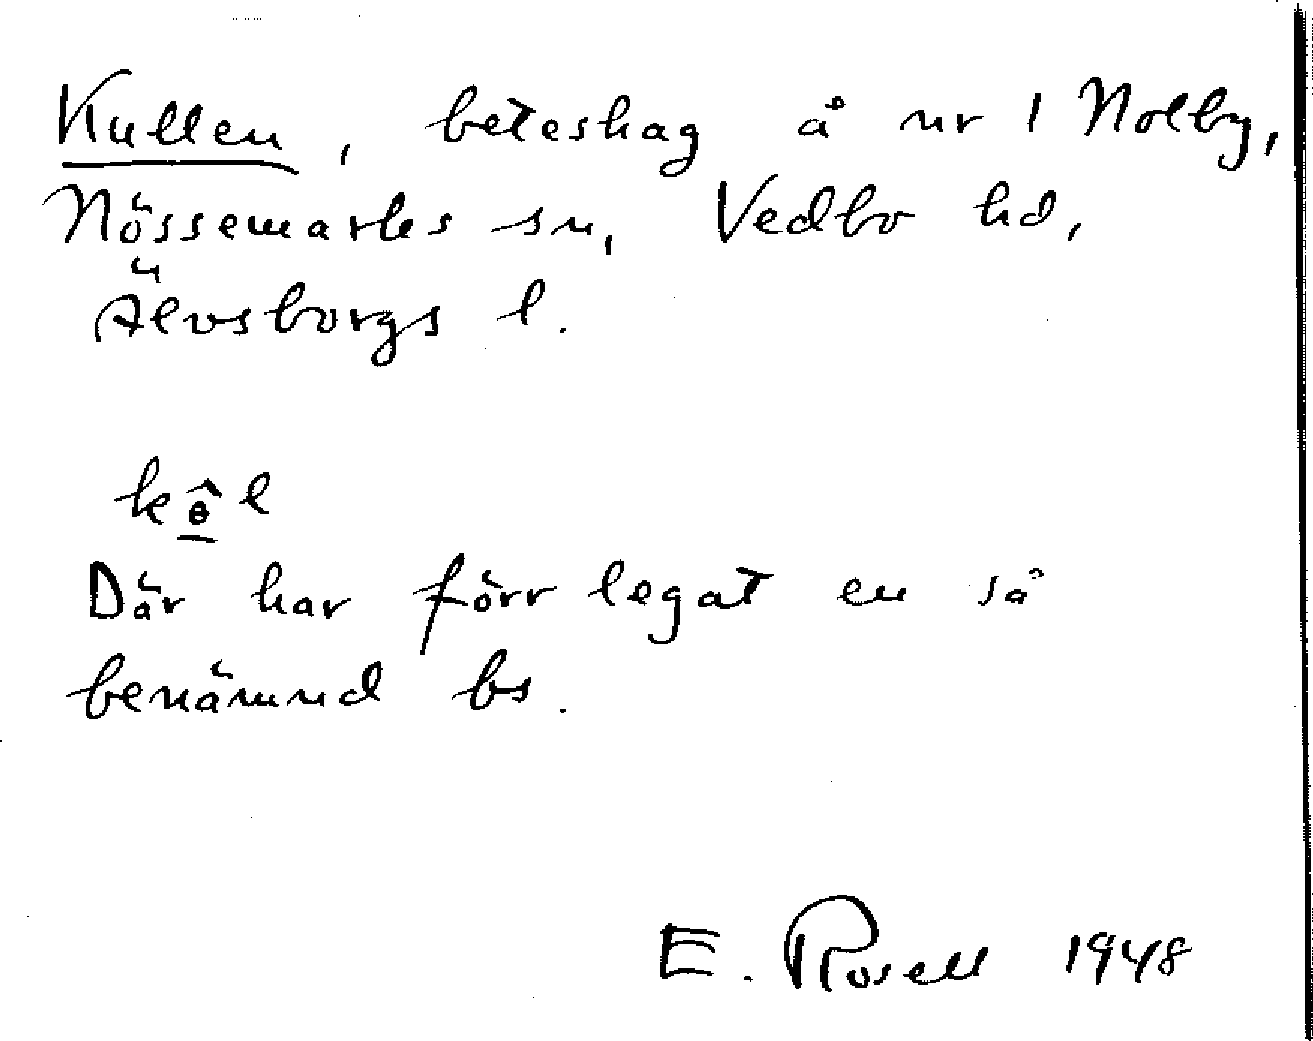 Kullen, beteshag å nr 1 Nolby,
Nössemarks sn, Vedbo hd,
Älvsborgs l.
kɵ̂l
Där har förr legat en så
benämnd bs.
E. Rosell 1948